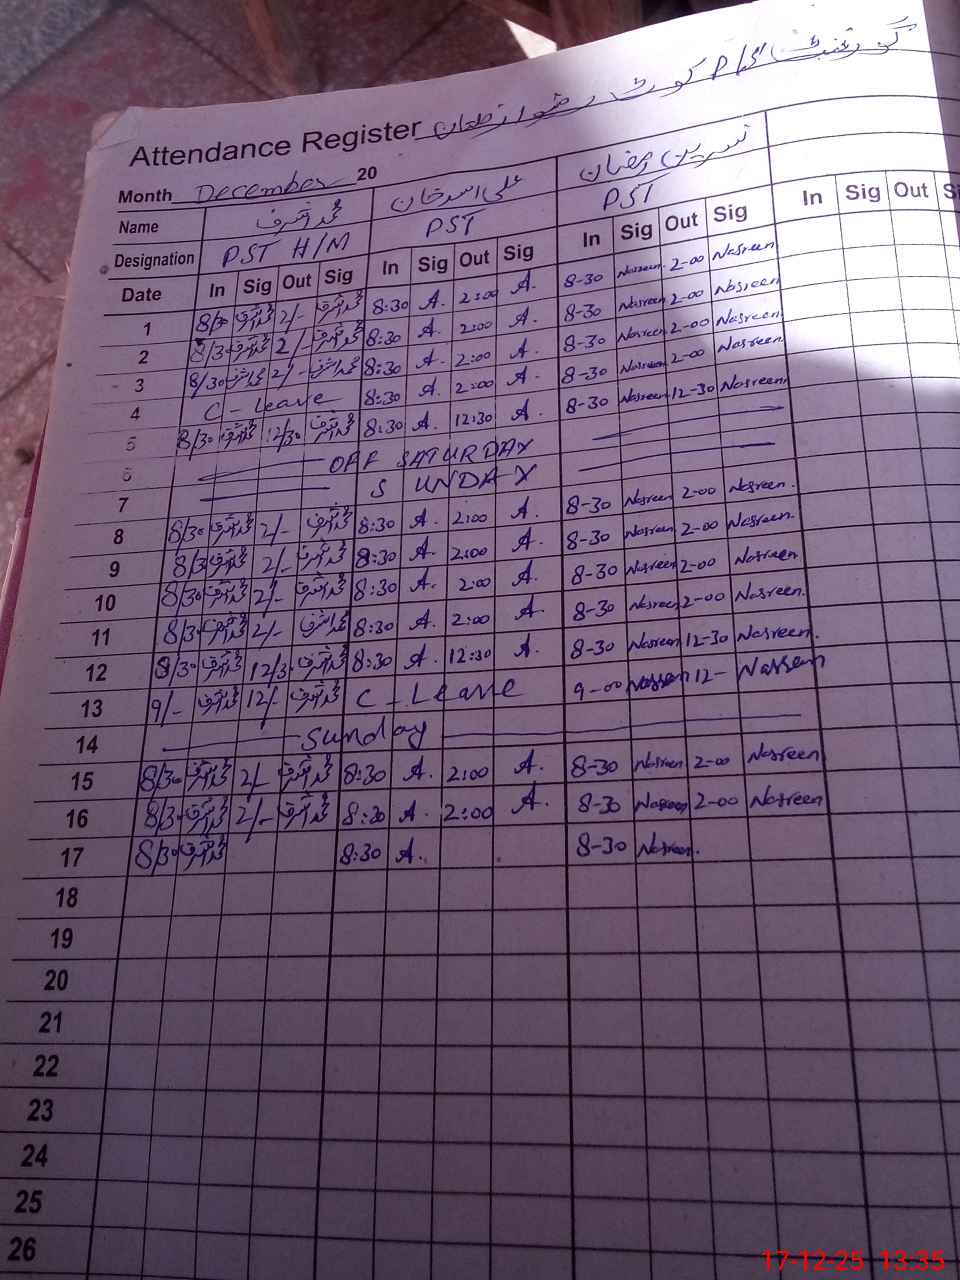 Attendance Register گورنمنٹ P/S کوٹ
Month December 20
Name محمد اشرف علی اسد خان نسرین رمضان
Designation PST H/M PST PST
Date In Sig Out Sig In Sig Out Sig In Sig Out Sig In Sig Out
1 8/30 محمد اشرف 2/- محمد اشرف 8:30 A. 2:00 A. 8-30 Nasreen 2-00 Nasreen
2 8/30 محمد اشرف 2/- محمد اشرف 8:30 A. 2:00 A. 8-30 Nasreen 2-00 Nasreen
3 8/30 محمد اشرف 2/- محمد اشرف 8:30 A. 2:00 A. 8-30 Nasreen 2-00 Nasreen
4 C-Leave 8:30 A. 2:00 A. 8-30 Nasreen 2-00 Nasreen
5 8/30 محمد اشرف 12/30 محمد اشرف 8:30 A. 12:30 A. 8-30 Nasreen 12-30 Nasreen
6 OFF SATURDAY
7 SUNDAY
8 8/30 محمد اشرف 2/- محمد اشرف 8:30 A. 2:00 A. 8-30 Nasreen 2-00 Nasreen.
9 8/30 محمد اشرف 2/- محمد اشرف 8:30 A. 2:00 A. 8-30 Nasreen 2-00 Nasreen.
10 8/30 محمد اشرف 2/- محمد اشرف 8:30 A. 2:00 A. 8-30 Nasreen 2-00 Nasreen.
11 8/30 محمد اشرف 2/- محمد اشرف 8:30 A. 2:00 A. 8-30 Nasreen 2-00 Nasreen.
12 8/30 محمد اشرف 12/3. محمد اشرف 8:30 A. 12:30 A. 8-30 Nasreen 12-30 Nasreen.
13 9/- محمد اشرف 12/- محمد اشرف C-Leave 9-00 Nasreen 12- Nasreen
14 Sunday
15 8/30 محمد اشرف 2/- محمد اشرف 8:30 A. 2:00 A. 8-30 Nasreen 2-00 Nasreen
16 8/30 محمد اشرف 2/- محمد اشرف 8:30 A. 2:00 A. 8-30 Nasreen 2-00 Nasreen
17 8/30 محمد اشرف 8:30 A. 8-30 Nasreen.
18
19
20
21
22
23
24
25
26
17-12-25 13:35